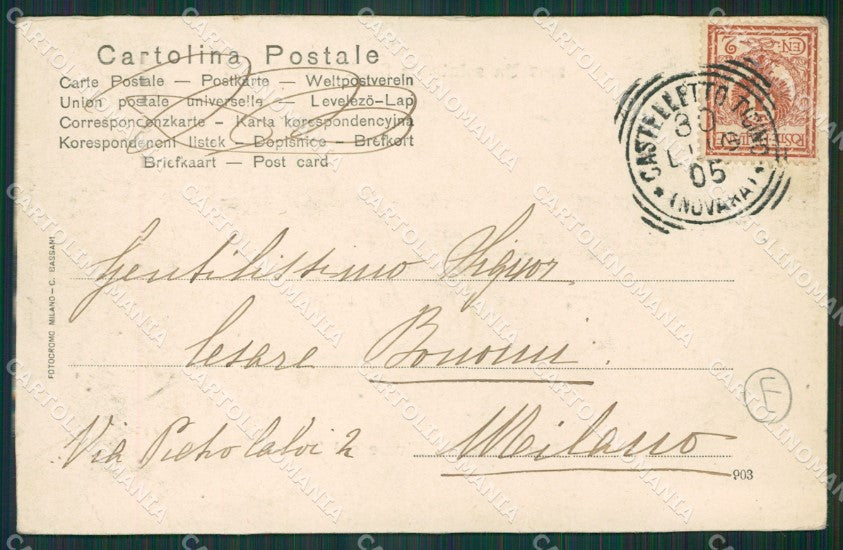 Cartolina Postale
Carte Postale — Postkarte — Weltpostverein
Union postale universelle — Levelező-Lap
Correspondenzkarte - Karta korespondencyjna
Korespondencni listek - Dopisnice - Brefkort
Briefkaart — Post card
CASTELLETTO TICINO
30
LUG
05
(NOVARA)
Gentilissimo Signor
Cesare Bonomi.
Via Pietro Calvi 2 Milano
903
FOTOCROMO MILANO - C. BASSANI
E
CARTOLINOMANIA